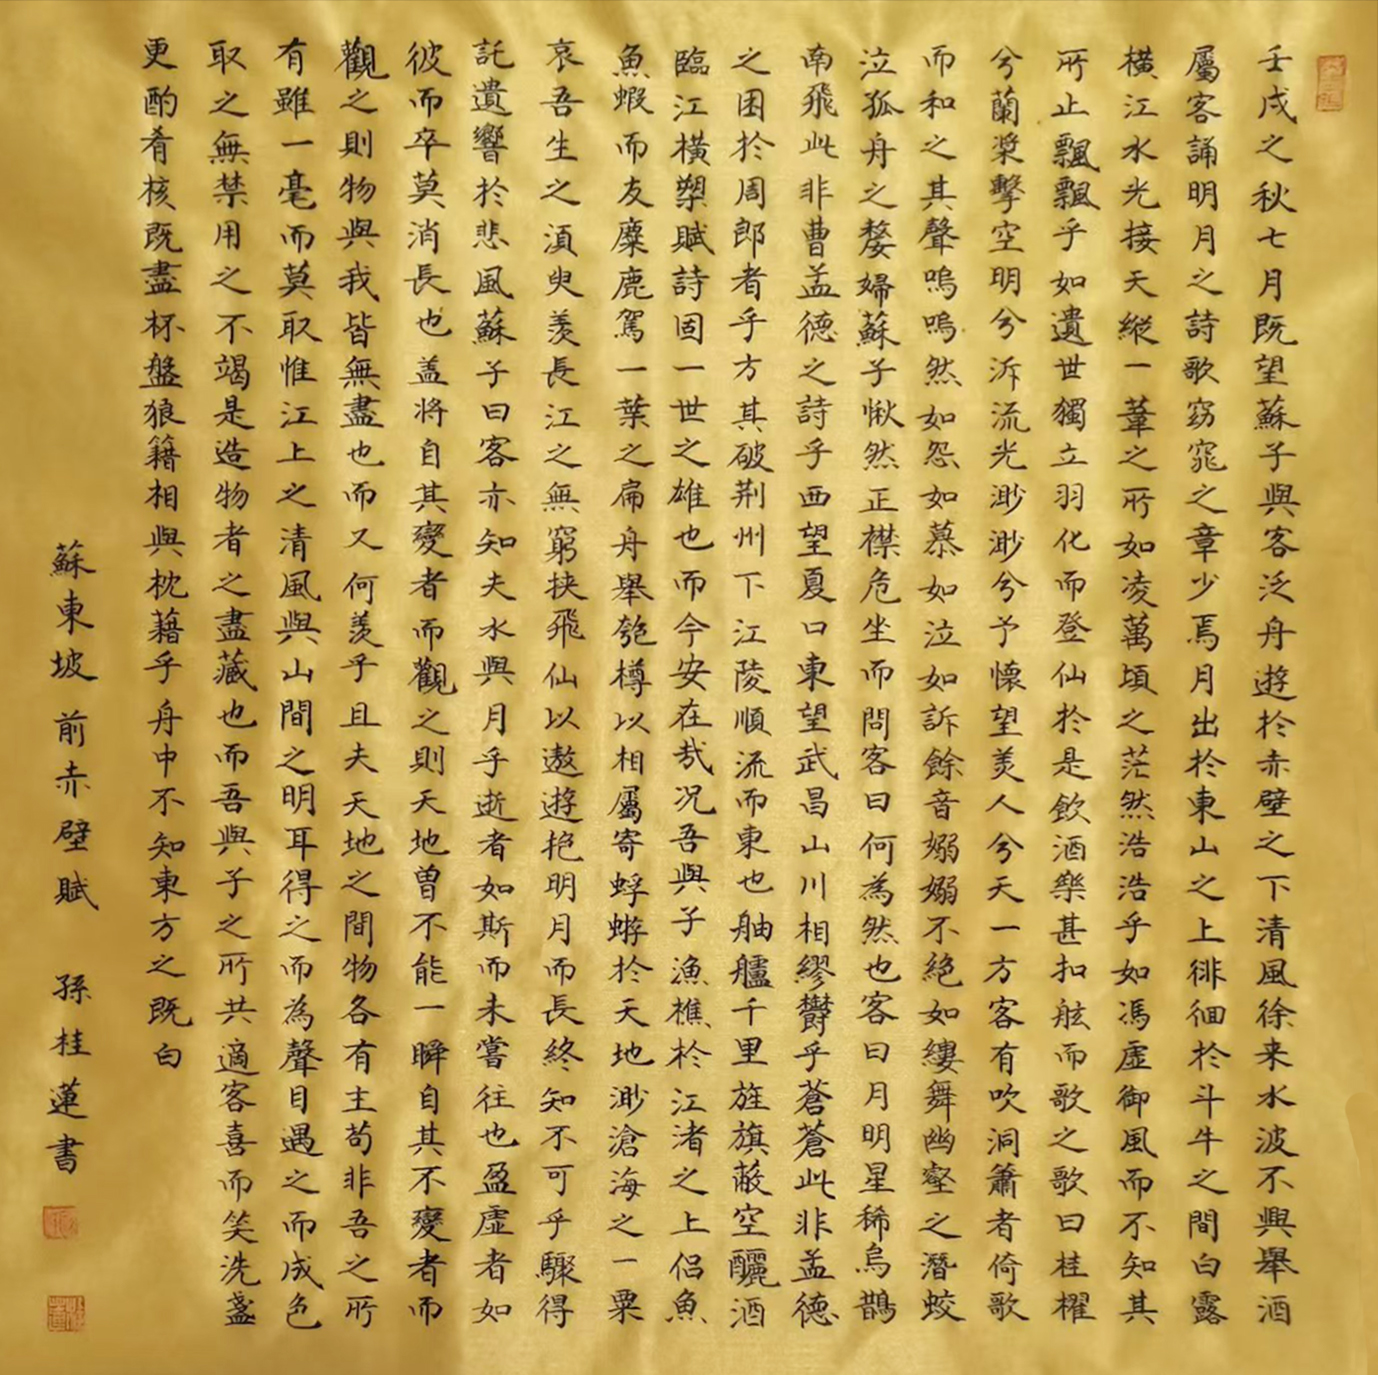 壬戌之秋七月既望蘇子與客泛舟遊於赤壁之下清風徐来水波不興舉酒
屬客誦明月之詩歌窈窕之章少焉月出於東山之上徘徊於斗牛之間白露
横江水光接天縱一葦之所如凌萬頃之茫然浩浩乎如馮虛御風而不知其
所止飄飄乎如遺世獨立羽化而登仙於是飲酒樂甚扣舷而歌之歌曰桂櫂
兮蘭槳擊空明兮泝流光渺渺兮予懷望美人兮天一方客有吹洞簫者倚歌
而和之其聲嗚嗚然如怨如慕如泣如訴餘音嫋嫋不絕如縷舞幽壑之潛蛟
泣孤舟之嫠婦蘇子愀然正襟危坐而問客曰何為然也客曰月明星稀烏鵲
南飛此非曹孟德之詩乎西望夏口東望武昌山川相繆鬱乎蒼蒼此非孟德
之困於周郎者乎方其破荆州下江陵順流而東也舳艫千里旌旗蔽空釃酒
臨江橫槊賦詩固一世之雄也而今安在哉況吾與子漁樵於江渚之上侣魚
魚蝦而友麋鹿駕一葉之扁舟舉匏樽以相屬寄蜉蝣於天地渺滄海之一粟
哀吾生之須臾羨長江之無窮挾飛仙以遨遊抱明月而長終知不可乎驟得
託遺響於悲風蘇子曰客亦知夫水與月乎逝者如斯而未嘗往也盈虛者如
彼而卒莫消長也盖将自其變者而觀之則天地曾不能一瞬自其不變者而
觀之則物與我皆無盡也而又何羨乎且夫天地之間物各有主苟非吾之所
有雖一毫而莫取惟江上之清風與山間之明耳得之而為聲目遇之而成色
取之無禁用之不竭是造物者之盡藏也而吾與子之所共適客喜而笑洗盞
更酌肴核既盡杯盤狼籍相與枕藉乎舟中不知東方之既白
蘇東坡前赤壁賦 孫桂蓮書